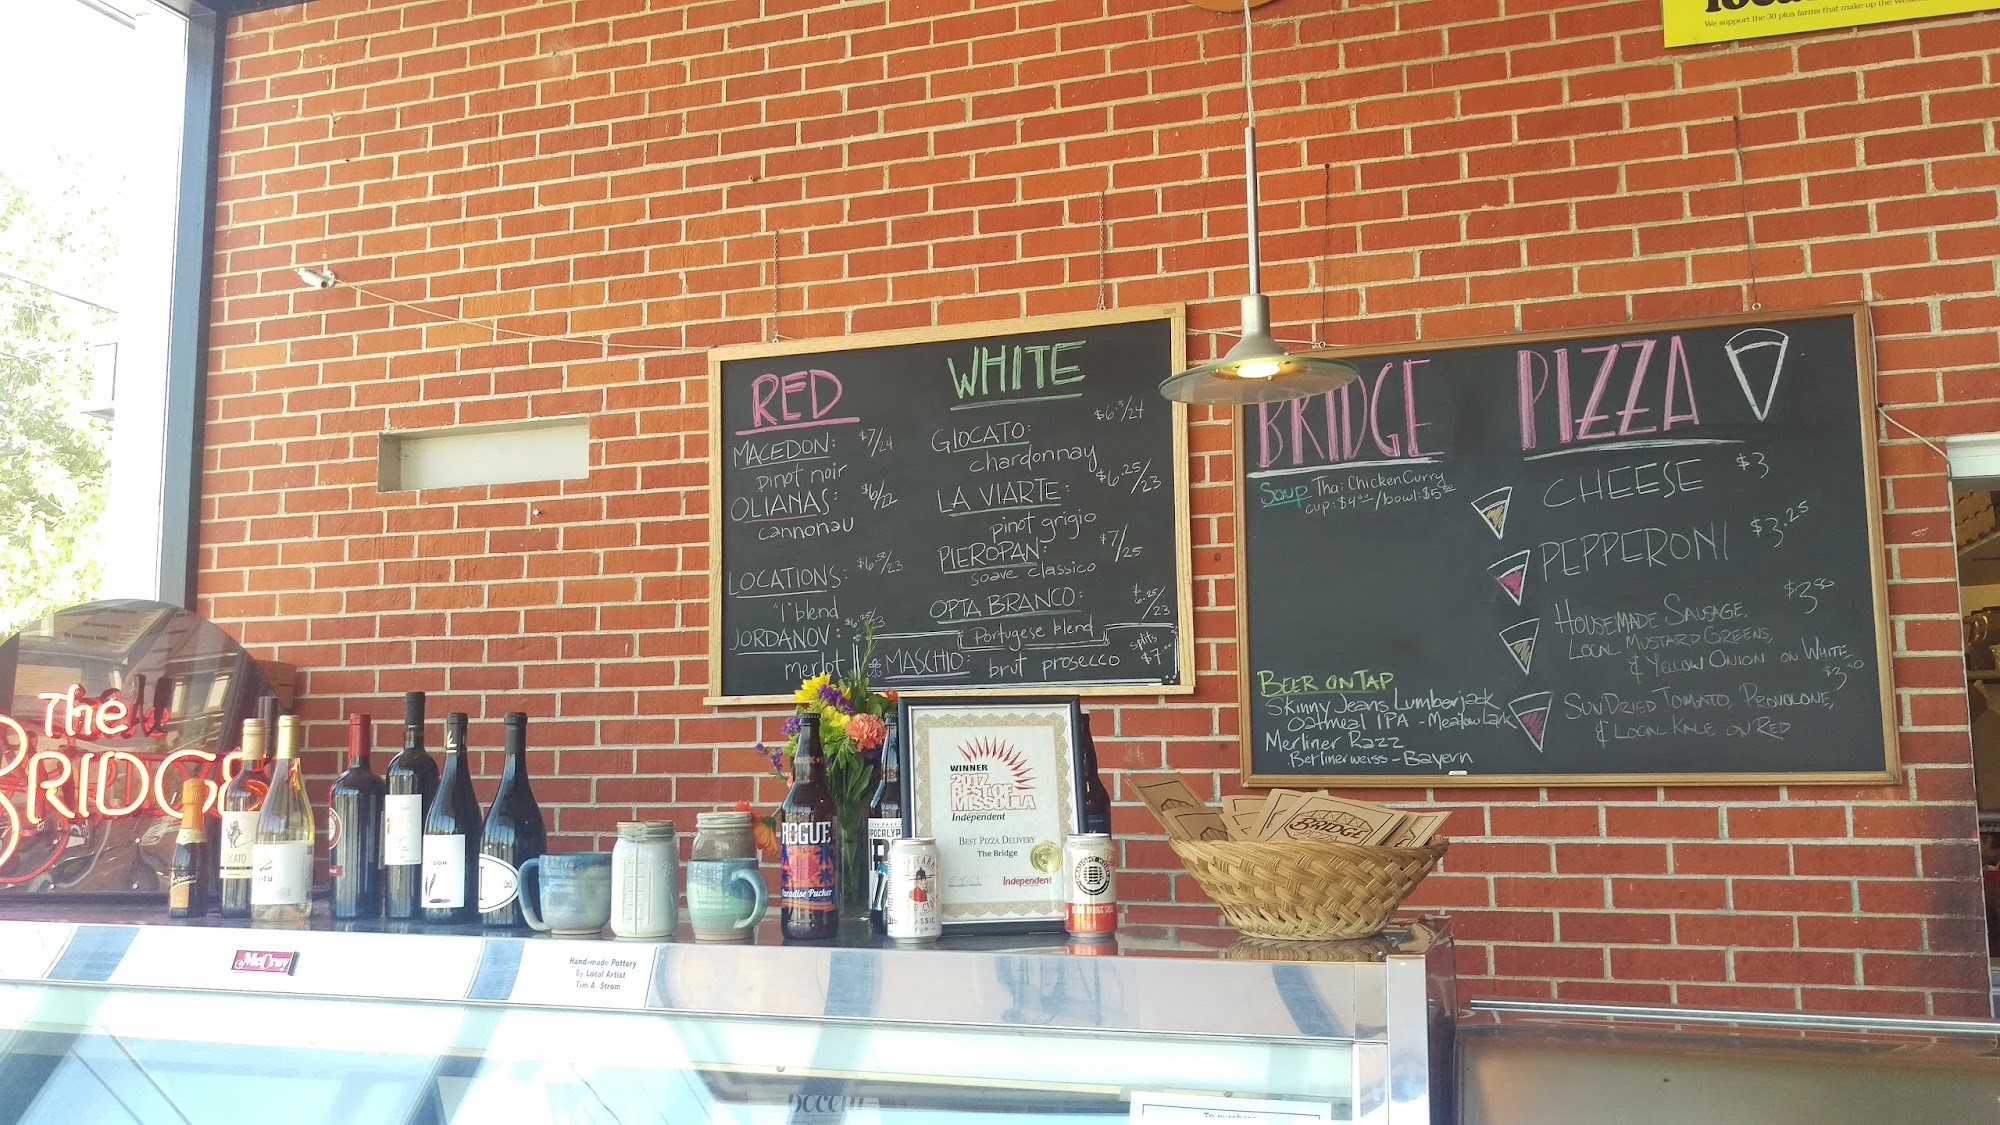 We support the 30 plus farms that make up the
RED
MACEDON: $7/24
pinot noir
OLIANAS: $6/22
cannonau
LOCATIONS: $6.50/23
"I" blend
JORDANOV: $6.25/23
merlot
WHITE
GIOCATO: $6.5/24
chardonnay
LA VIARTE: $6.25/23
pinot grigio
PIEROPAN: $7/25
soave classico
OPTA BRANCO: $6.25/23
Portugese blend
MASCHIO: brut prosecco splits $7.00
BRIDGE PIZZA
Soup Thai Chicken Curry
cup: $4.00/bowl: $5.50
CHEESE $3
PEPPERONI $3.25
HOUSEMADE SAUSAGE, $3.50
LOCAL MUSTARD GREENS,
& YELLOW ONION ON WHITE
SUNDRIED TOMATO, PROVOLONE, $3.50
& LOCAL KALE ON RED
BEER ON TAP
Skinny Jeans Lumberjack
Oatmeal IPA - Meadowlark
Merliner Razz
Berlinerweiss - Bayern
The
BRIDGE
ROGUE
Paradise Pucker
WINNER
2017
BEST OF
MISSOULA
Independent
BEST PIZZA DELIVERY
The Bridge
Independent
BRIDGE
McCray
Hand-made Pottery
By Local Artist
Tim A. Strom